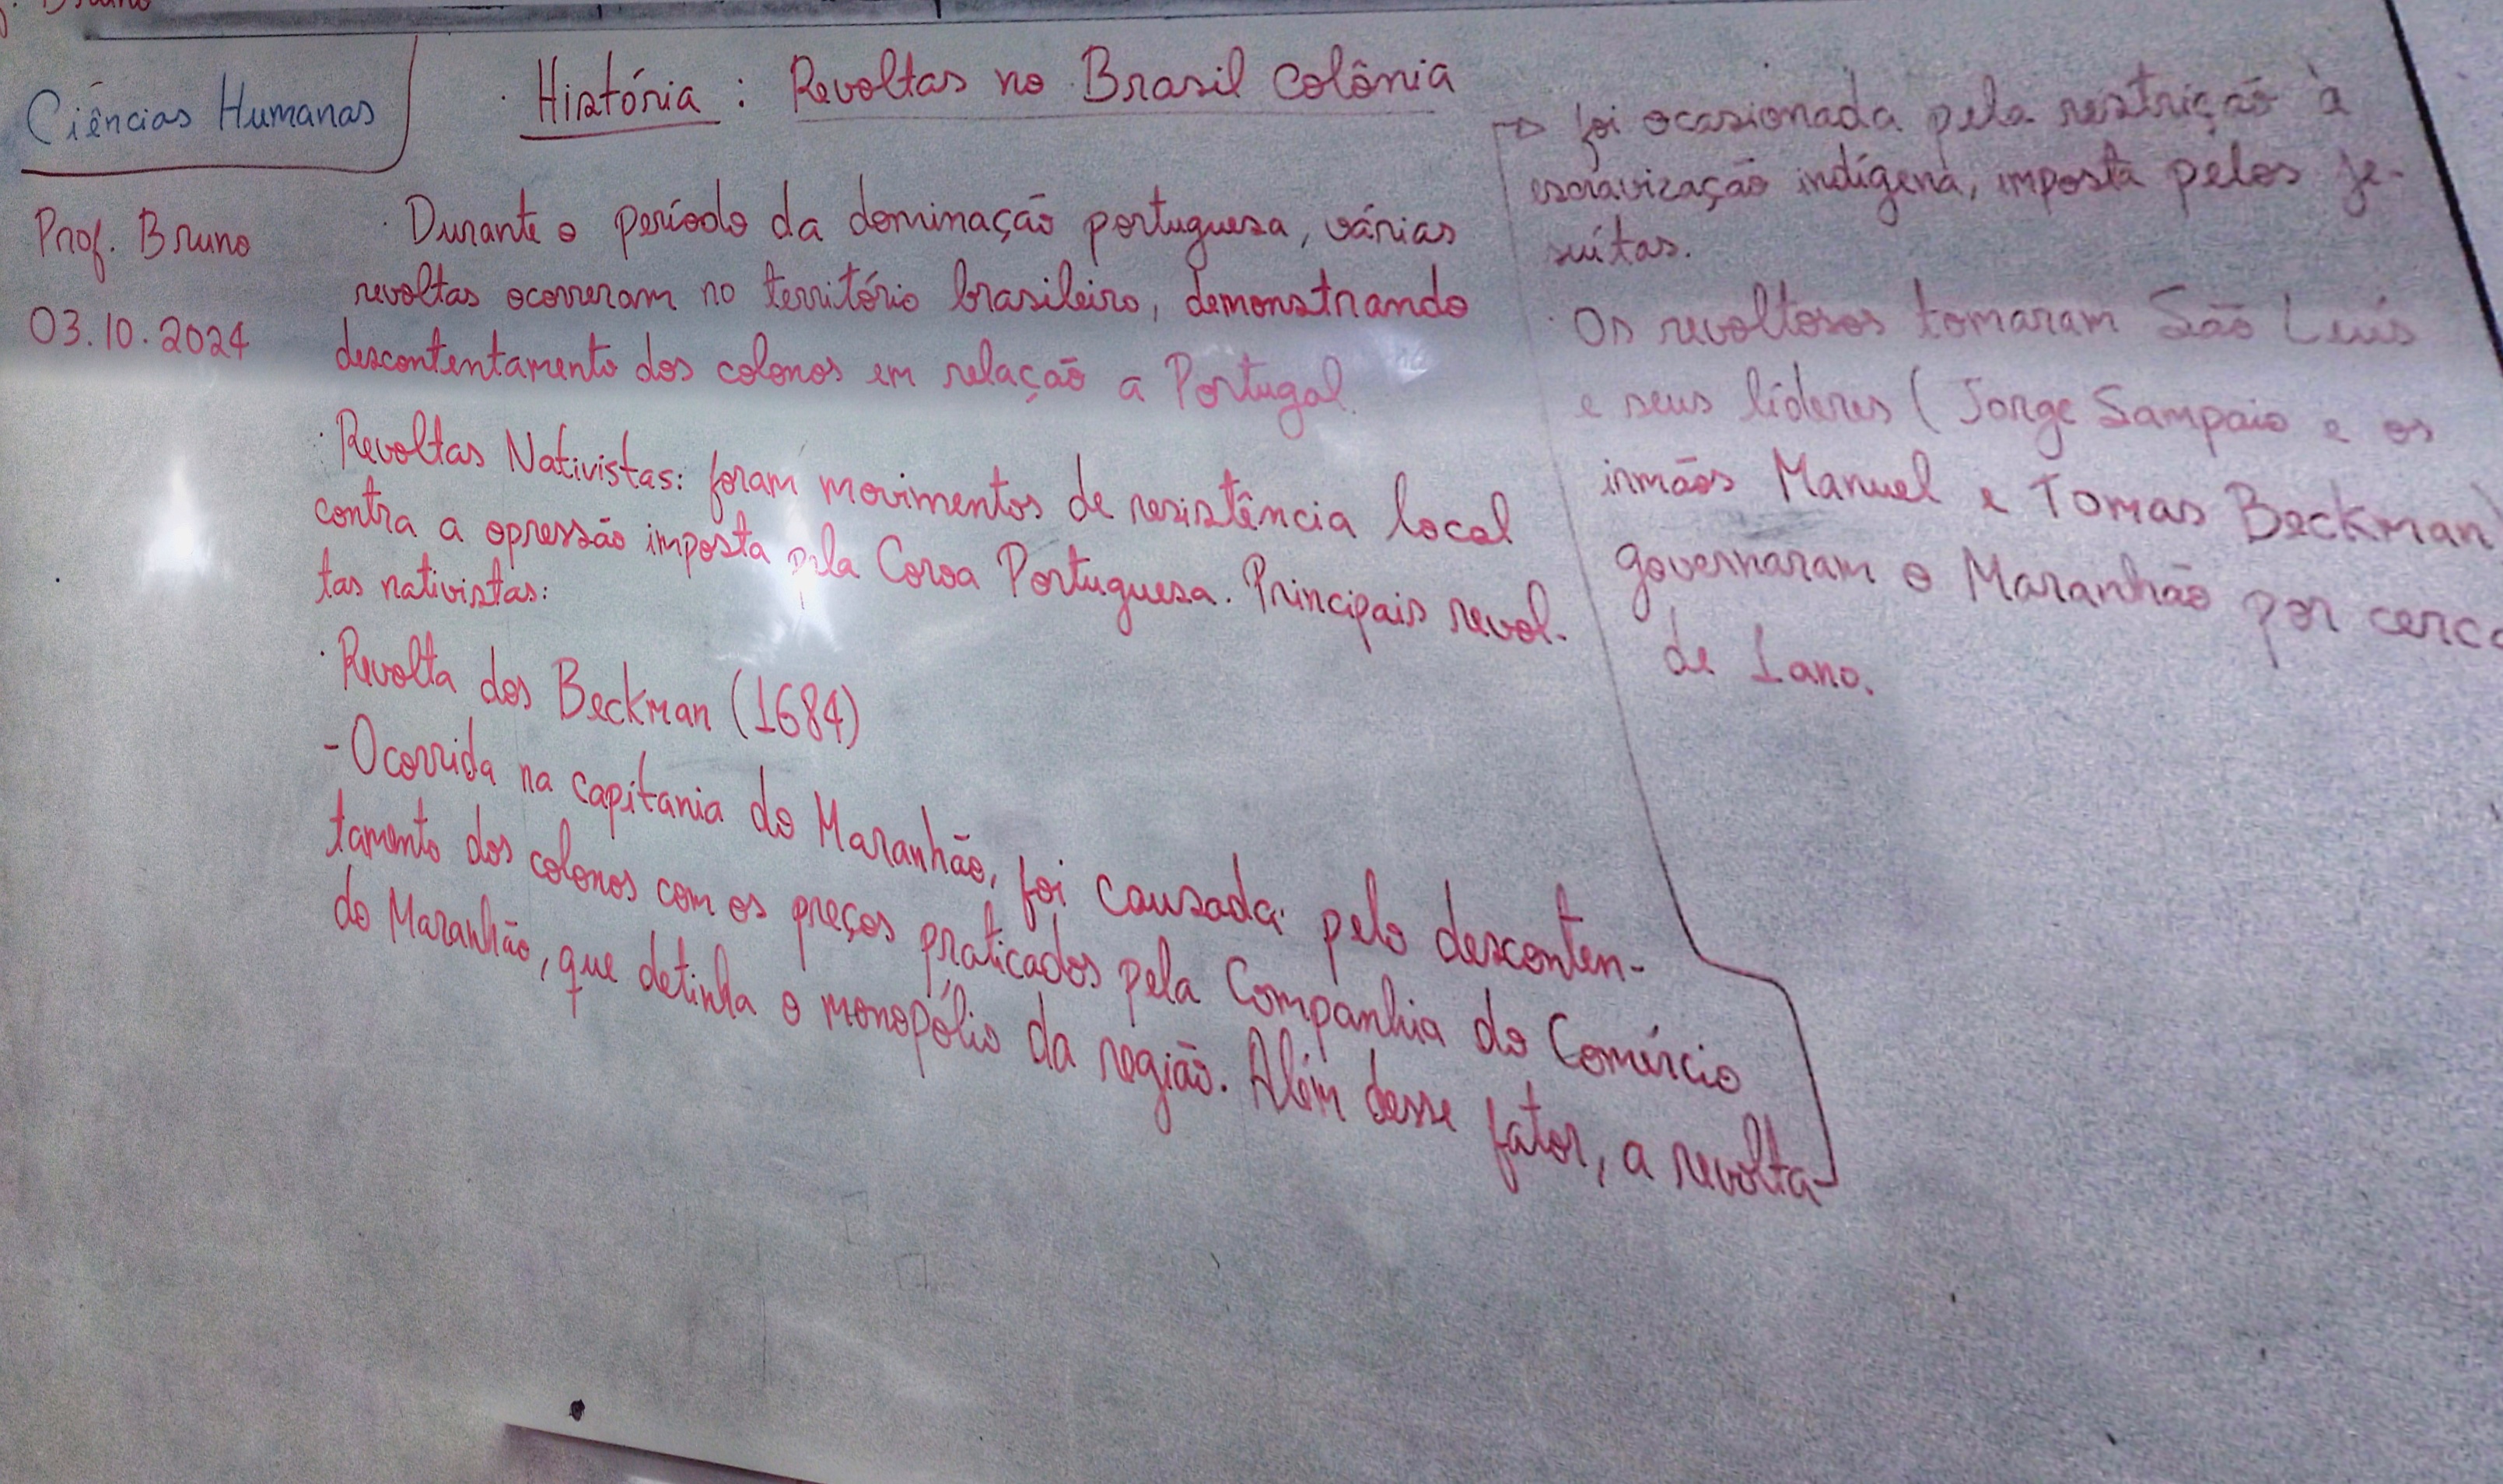 Ciências Humanas
Prof. Bruno
03.10.2024
História: Revoltas no Brasil colônia
· Durante o período da dominação portuguesa, várias
revoltas ocorreram no território brasileiro, demonstrando
descontentamento dos colonos em relação a Portugal.
· Revoltas Nativistas: foram movimentos de resistência local
contra a opressão imposta pela Coroa Portuguesa. Principais revol-
tas nativistas:
· Revolta dos Beckman (1684)
- Ocorrida na capitania do Maranhão, foi causada pelo desconten-
tamento dos colonos com os preços praticados pela Companhia do Comércio
do Maranhão, que detinha o monopólio da região. Além desse fator, a revolta
foi ocasionada pela restrição à
escravização indígena, imposta pelos je-
suítas.
· Os revoltosos tomaram São Luís
e seus líderes (Jorge Sampaio e os
irmãos Manuel e Tomas Beckman)
governaram o Maranhão por cerca
de 1 ano.